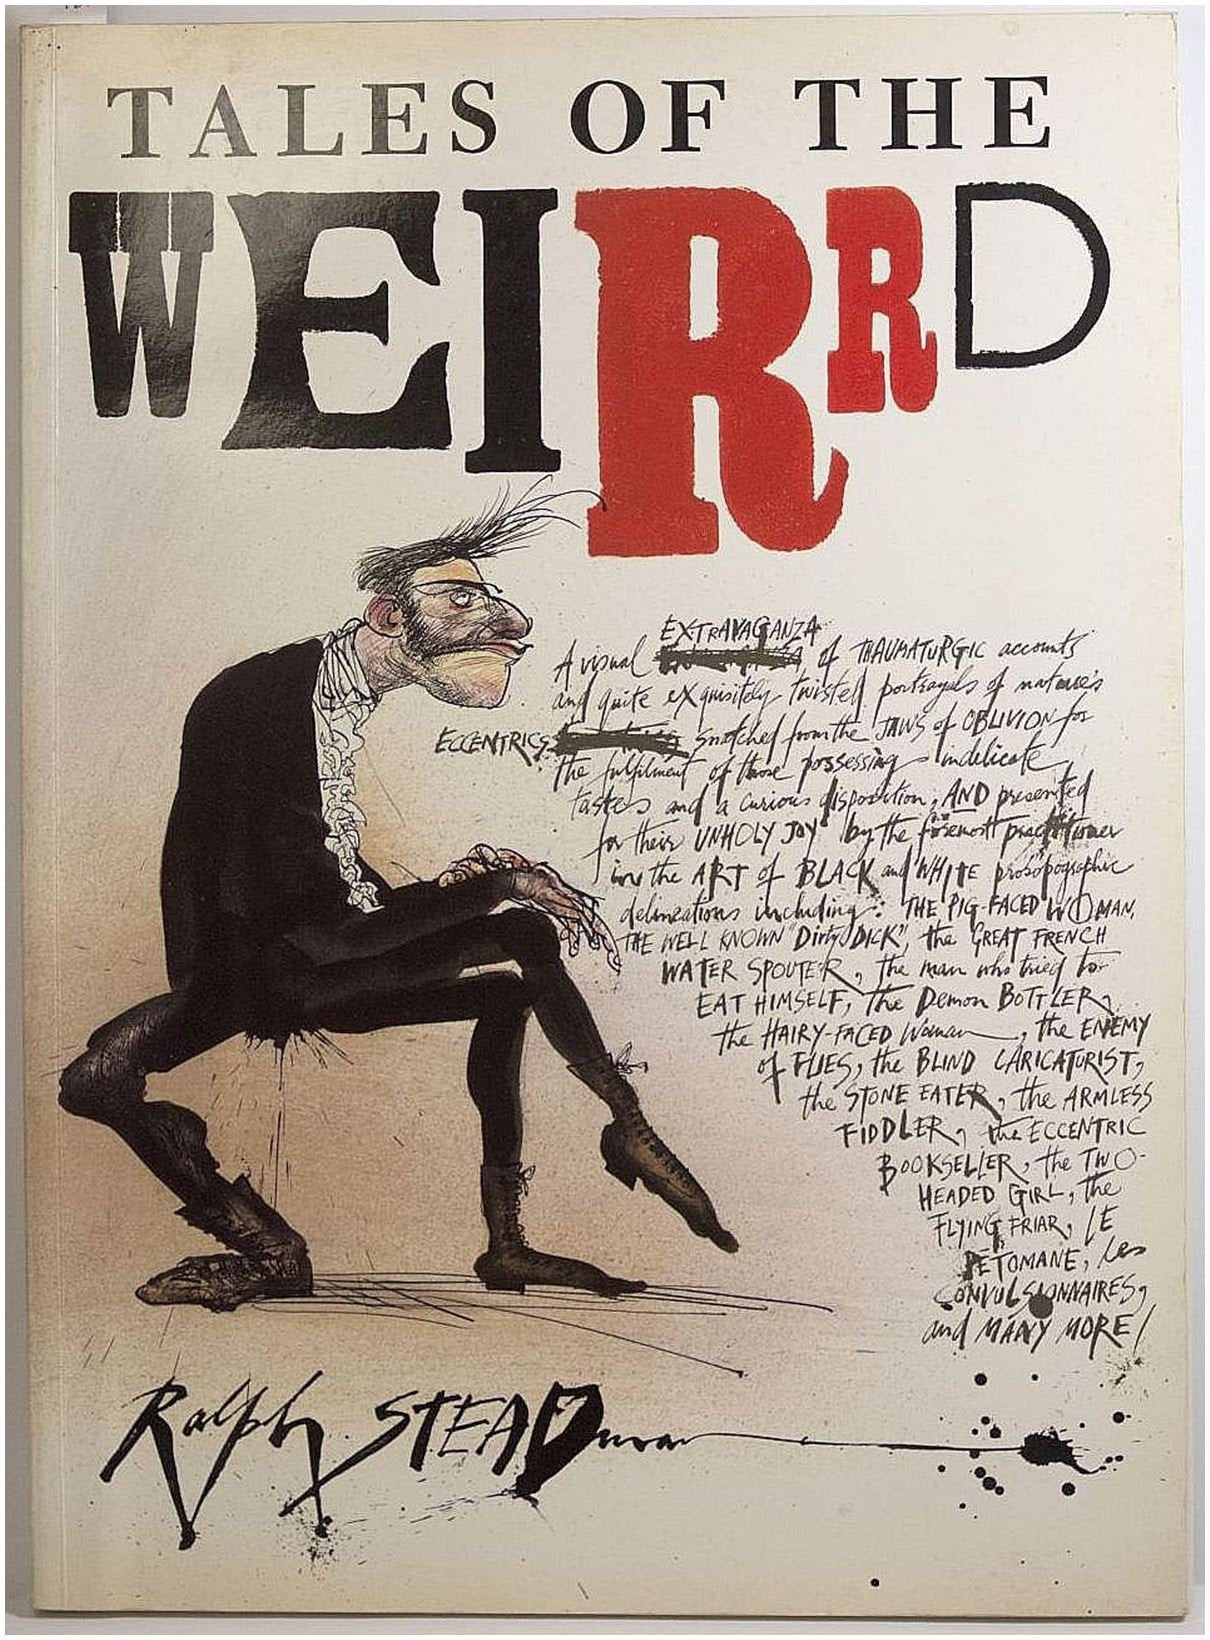 TALES OF THE
WEIRRD
EXTRAVAGANZA
A visual of THAUMATURGIC accounts
and quite exquisitely twisted portrayals of nature's
ECCENTRICS snatched from the JAWS of OBLIVION for
the fulfilment of those possessing indelicate
tastes and a curious disposition, AND presented
for their UNHOLY JOY by the foremost practitioner
in the ART of BLACK and WHITE prosopographic
delineations including: THE PIG-FACED WOMAN,
THE WELL KNOWN "Dirty DICK", the GREAT FRENCH
WATER SPOUTER, the man who tried to
EAT HIMSELF, the Demon BOTTLER,
the HAIRY-FACED Woman, the ENEMY
of FLIES, the BLIND CARICATURIST,
the STONE EATER, the ARMLESS
FIDDLER, the ECCENTRIC
BOOKSELLER, the TWO-
HEADED GIRL, the
FLYING FRIAR, LE
PETOMANE, Les
CONVULSIONNAIRES,
and MANY MORE!
Ralph STEADman